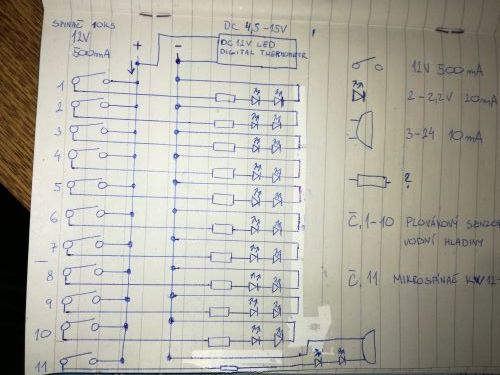 SPÍNAČ 10KS
12V
500mA
+
-
DC 4,5-15V
DC 12V LED
DIGITAL THERMOMETR
1
2
3
4
5
6
7
8
9
10
11
12V 500mA
2-2,2V 20mA
3-24 10mA
?
Č.1-10 PLOVÁKOVÝ SENZOR
VODNÍ HLADINY
Č.11 MIKROSPÍNAČ